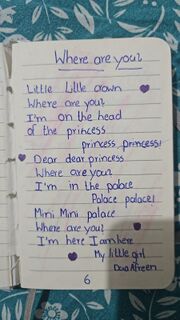 Where are you?
Little Little crown
Where are you?
I'm on the head
of the princess
princess princess!
Dear dear princess
Where are you?
I'm in the palace
Palace palace!
Mini Mini palace
Where are you?
I'm here I am here
My little girl
Dua Afreen
6